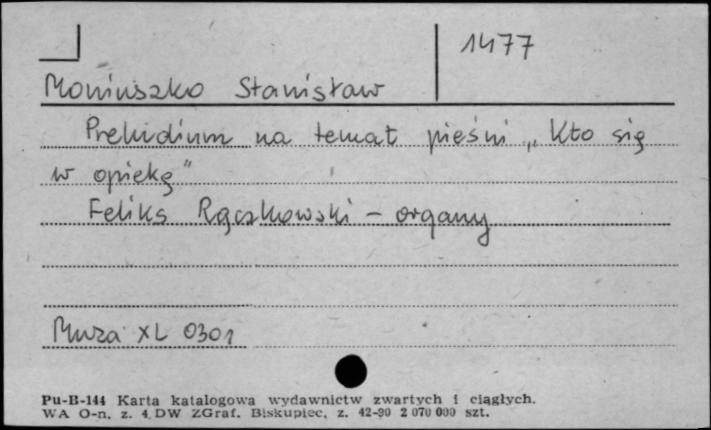 1477
Moniuszko Stanisław
Preludium na temat pieśni „Kto się
w opiekę"
Feliks Rączkowski - organy
Muza XL 0301
Pu-B-144 Karta katalogowa wydawnictw zwartych i ciągłych.
WA O-n, z. 4. DW ZGraf. Biskupiec, z. 42-90 2 070 000 szt.